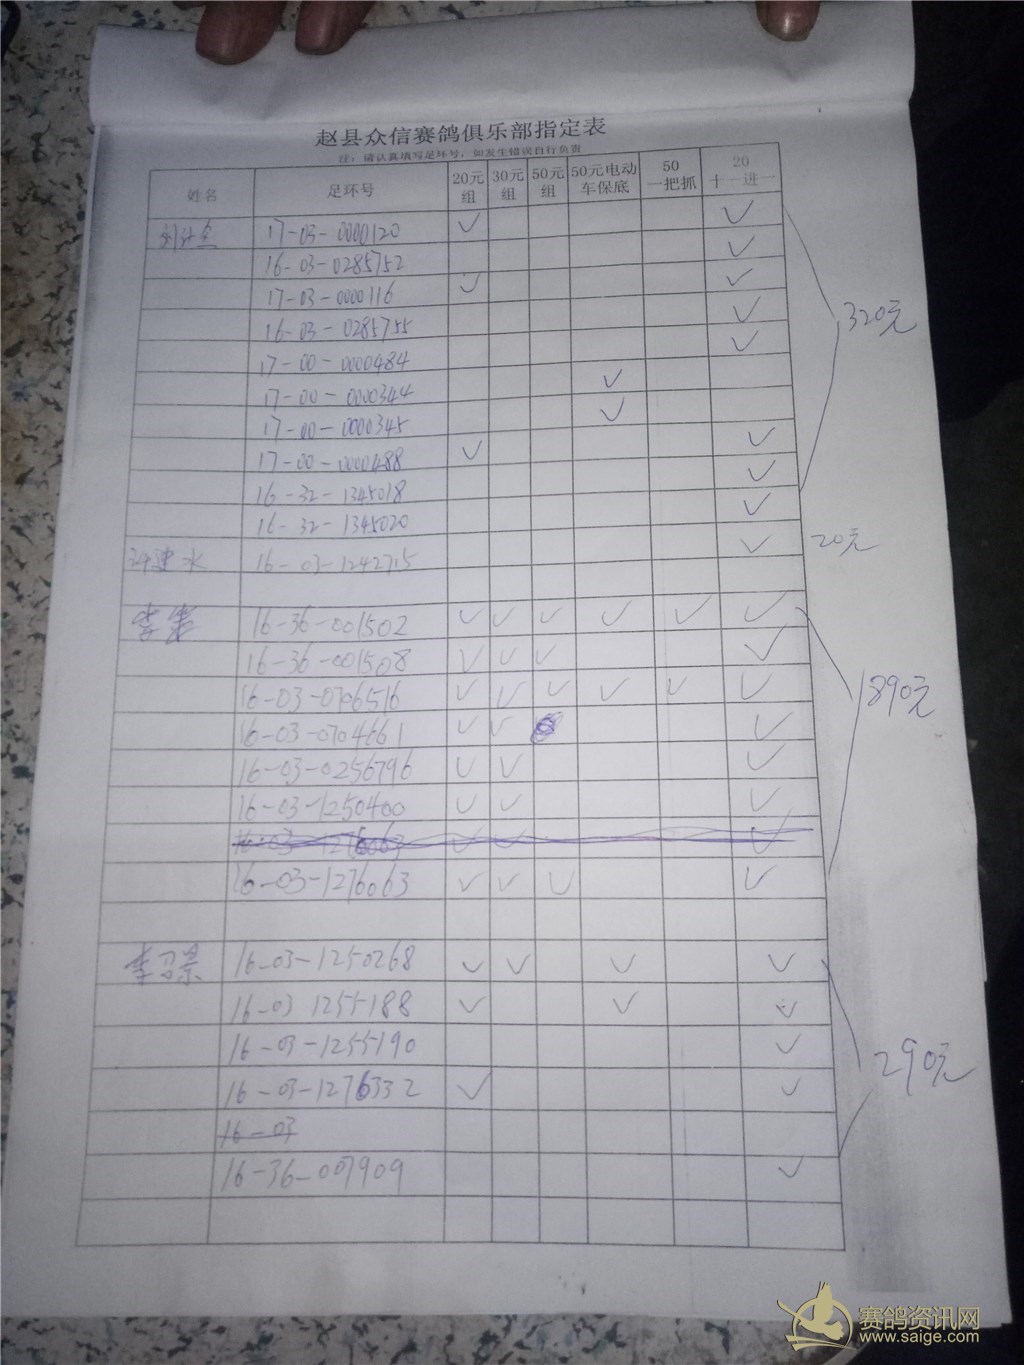 赵县众信赛鸽俱乐部指定表
注：请认真填写足环号，如发生错误自行负责
姓名 足环号 20元组 30元组 50元组 50元电动车保底 50一把抓 20十一进一
17-03-0000120 ✓ ✓
16-03-0285752 ✓
17-03-0000116 ✓ ✓
16-03-0285755 ✓
320元
17-00-0000484 ✓
17-00-0000344 ✓
17-00-0000345 ✓
17-00-0000488 ✓ ✓
16-32-1345018 ✓
16-32-1345020 ✓
16-03-1242715 ✓
20元
16-36-001502 ✓ ✓ ✓ ✓ ✓ ✓
16-36-001508 ✓ ✓ ✓ ✓
16-03-0706516 ✓ ✓ ✓ ✓ ✓ ✓
890元
16-03-0704661 ✓ ✓ ✓
16-03-0256796 ✓ ✓ ✓
16-03-1250400 ✓ ✓ ✓
16-03-1276063 ✓ ✓ ✓ ✓
李召景 16-03-1250268 ✓ ✓ ✓ ✓
16-03 1255188 ✓ ✓ ✓
16-03-1255190 ✓
290元
16-03-1276332 ✓ ✓
16-03
16-36-007909 ✓
赛鸽资讯网
www.saige.com